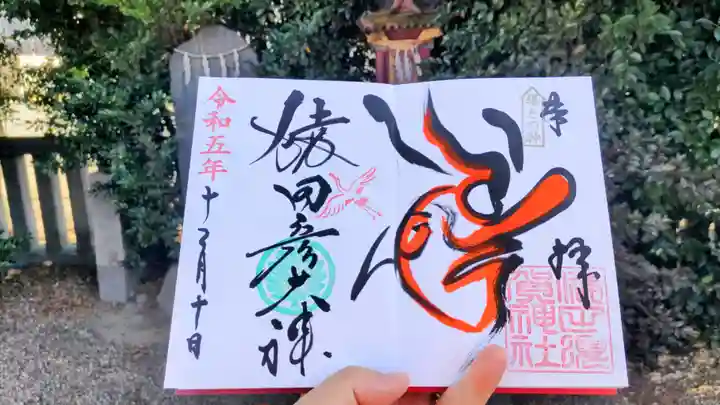 奉拝
賀神社
猿田彦大神
令和五年
十二月十日